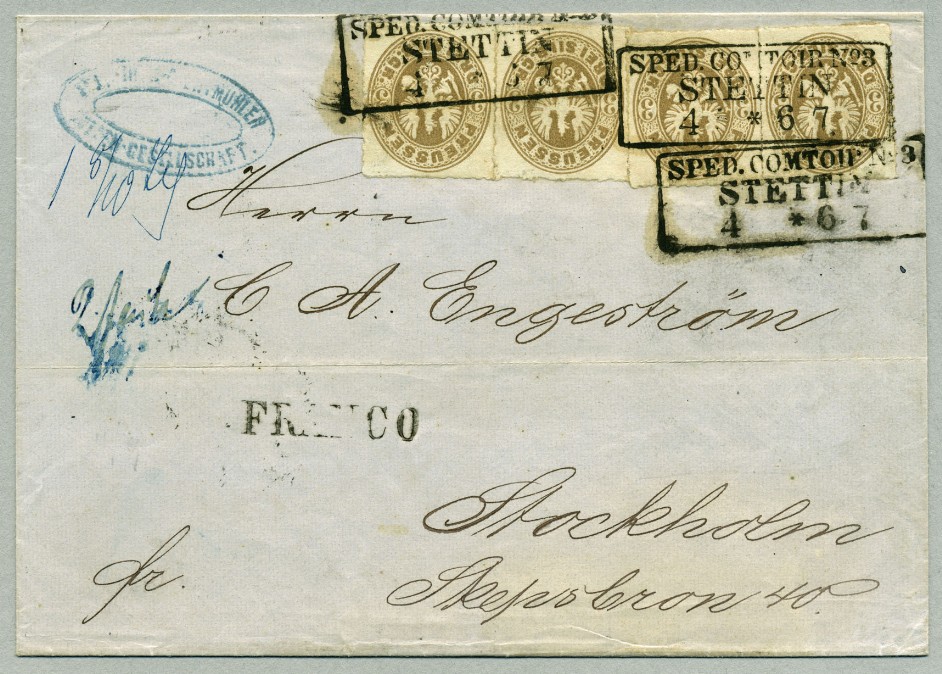 SPED. COMTOIR No 3
STETTIN
4 * 6 7
SPED. COMTOIR No 3
STETTIN
4 * 6 7.
SPED. COMTOIR No 3
STETTIN
4 * 6 7
PREUSSEN
PREUSSEN
GESELLSCHAFT.
Herrn
C. A. Engeström
FRANCO
Stockholm
fr.
Skepsbron 40.